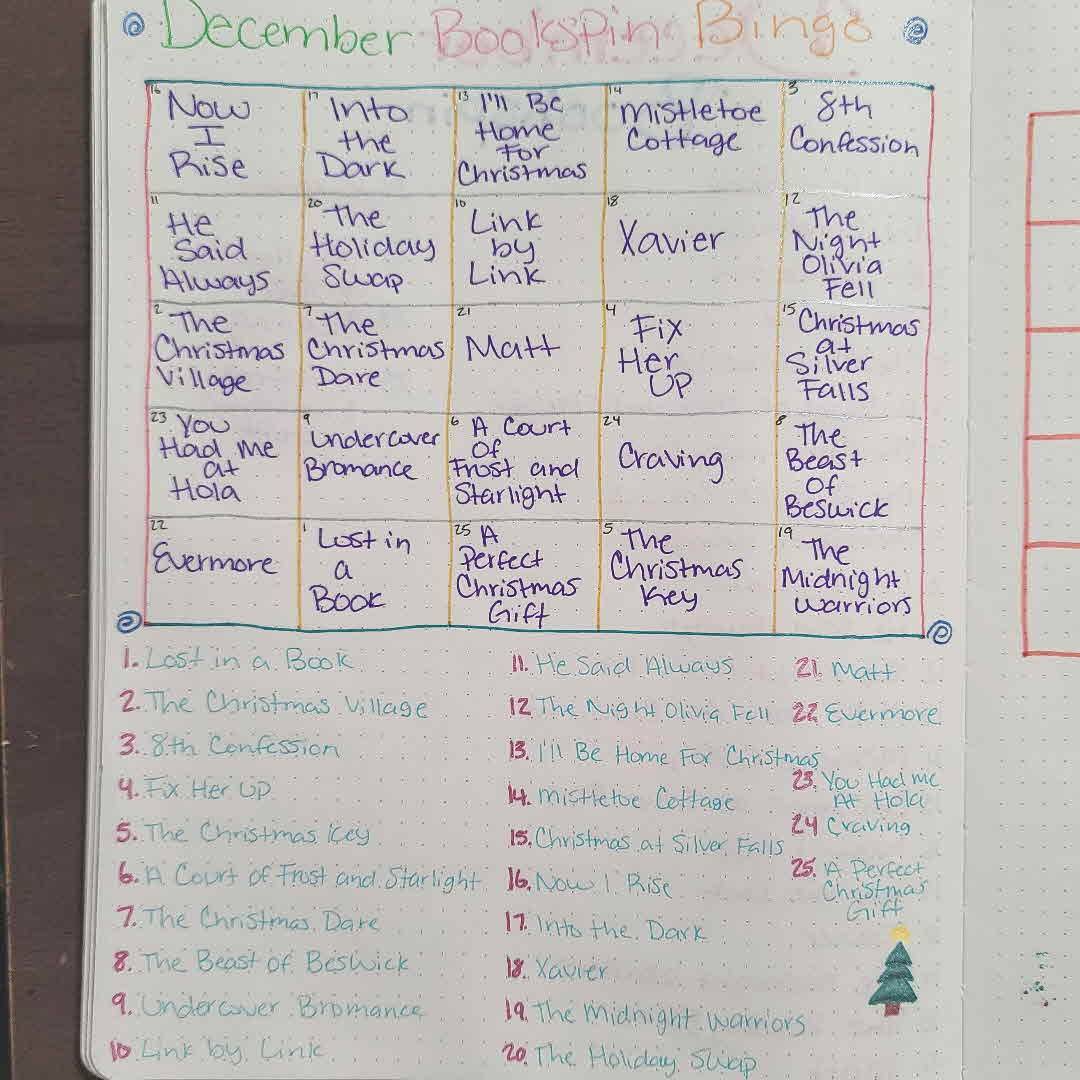 December Bookspin Bingo
16 Now
I
Rise
17 Into
the
Dark
13 I'll Be
Home
For
Christmas
14 Mistletoe
Cottage
3 8th
Confession
11 He
Said
Always
20 The
Holiday
Swap
10 Link
by
Link
18 Xavier
12 The
Night
Olivia
Fell
2 The
Christmas
Village
7 The
Christmas
Dare
21 Matt
4 Fix
Her
Up
15 Christmas
at
Silver
Falls
23 You
Had Me
at
Hola
9 Undercover
Bromance
6 A Court
Of
Frost and
Starlight
24 Craving
8 The
Beast
Of
Beswick
22 Evermore
1 Lost in
a
Book
25 A
Perfect
Christmas
Gift
5 The
Christmas
Key
19 The
Midnight
Warriors
1. Lost in a Book
2. The Christmas Village
3. 8th Confession
4. Fix Her Up
5. The Christmas Key
6. A Court of Frost and Starlight
7. The Christmas Dare
8. The Beast of Beswick
9. Undercover Bromance
10 Link by Link
11. He Said Always
12 The Night Olivia Fell
13. I'll Be Home For Christmas
14. Mistletoe Cottage
15. Christmas at Silver Falls
16. Now I Rise
17. Into the Dark
18. Xavier
19. The Midnight Warriors
20. The Holiday Swap
21. Matt
22. Evermore
23. You Had Me
At Hola
24 Craving
25. A Perfect
Christmas
Gift